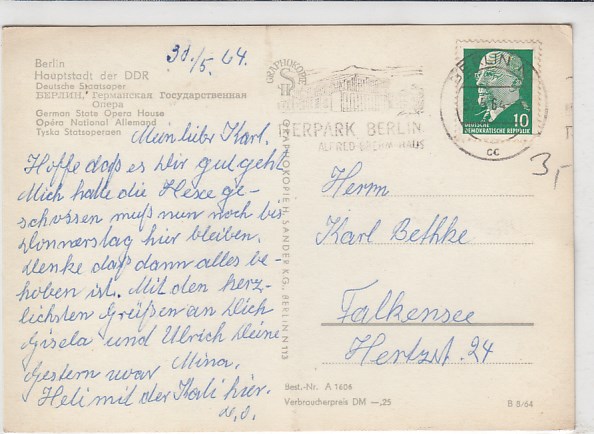 Berlin
Hauptstadt der DDR
Deutsche Staatsoper
БЕРЛИН, Германская Государственная
Опера
German State Opera House
Opéra National Allemand
Tyska Statsoperaen
30./5. 64.
Mein lieber Karl.
Hoffe daß es Dir gut geht
Mich hatte die Hexe ge-
schossen muß nun noch bis
Donnerstag hier bleiben.
Denke daß dann alles be-
hoben ist. Mit den herz-
lichsten Grüßen an Dich
Gisela und Ulrich Deine
Mina.
Gestern war
Heli mit der Kati hier.
GRAPHOKOPIE
GRAPHOKOPIE H. SANDER KG, BERLIN N 113
BERLIN
64
ERPARK BERLIN
ALFRED-BREHM-HAUS
cc
10
DEUTSCHE
DEMOKRATISCHE REPUBLIK
3,-
Herrn
Karl Bethke
Falkensee
Hertzst. 24
Best.-Nr. A 1606
Verbraucherpreis DM —,25
B 8/64